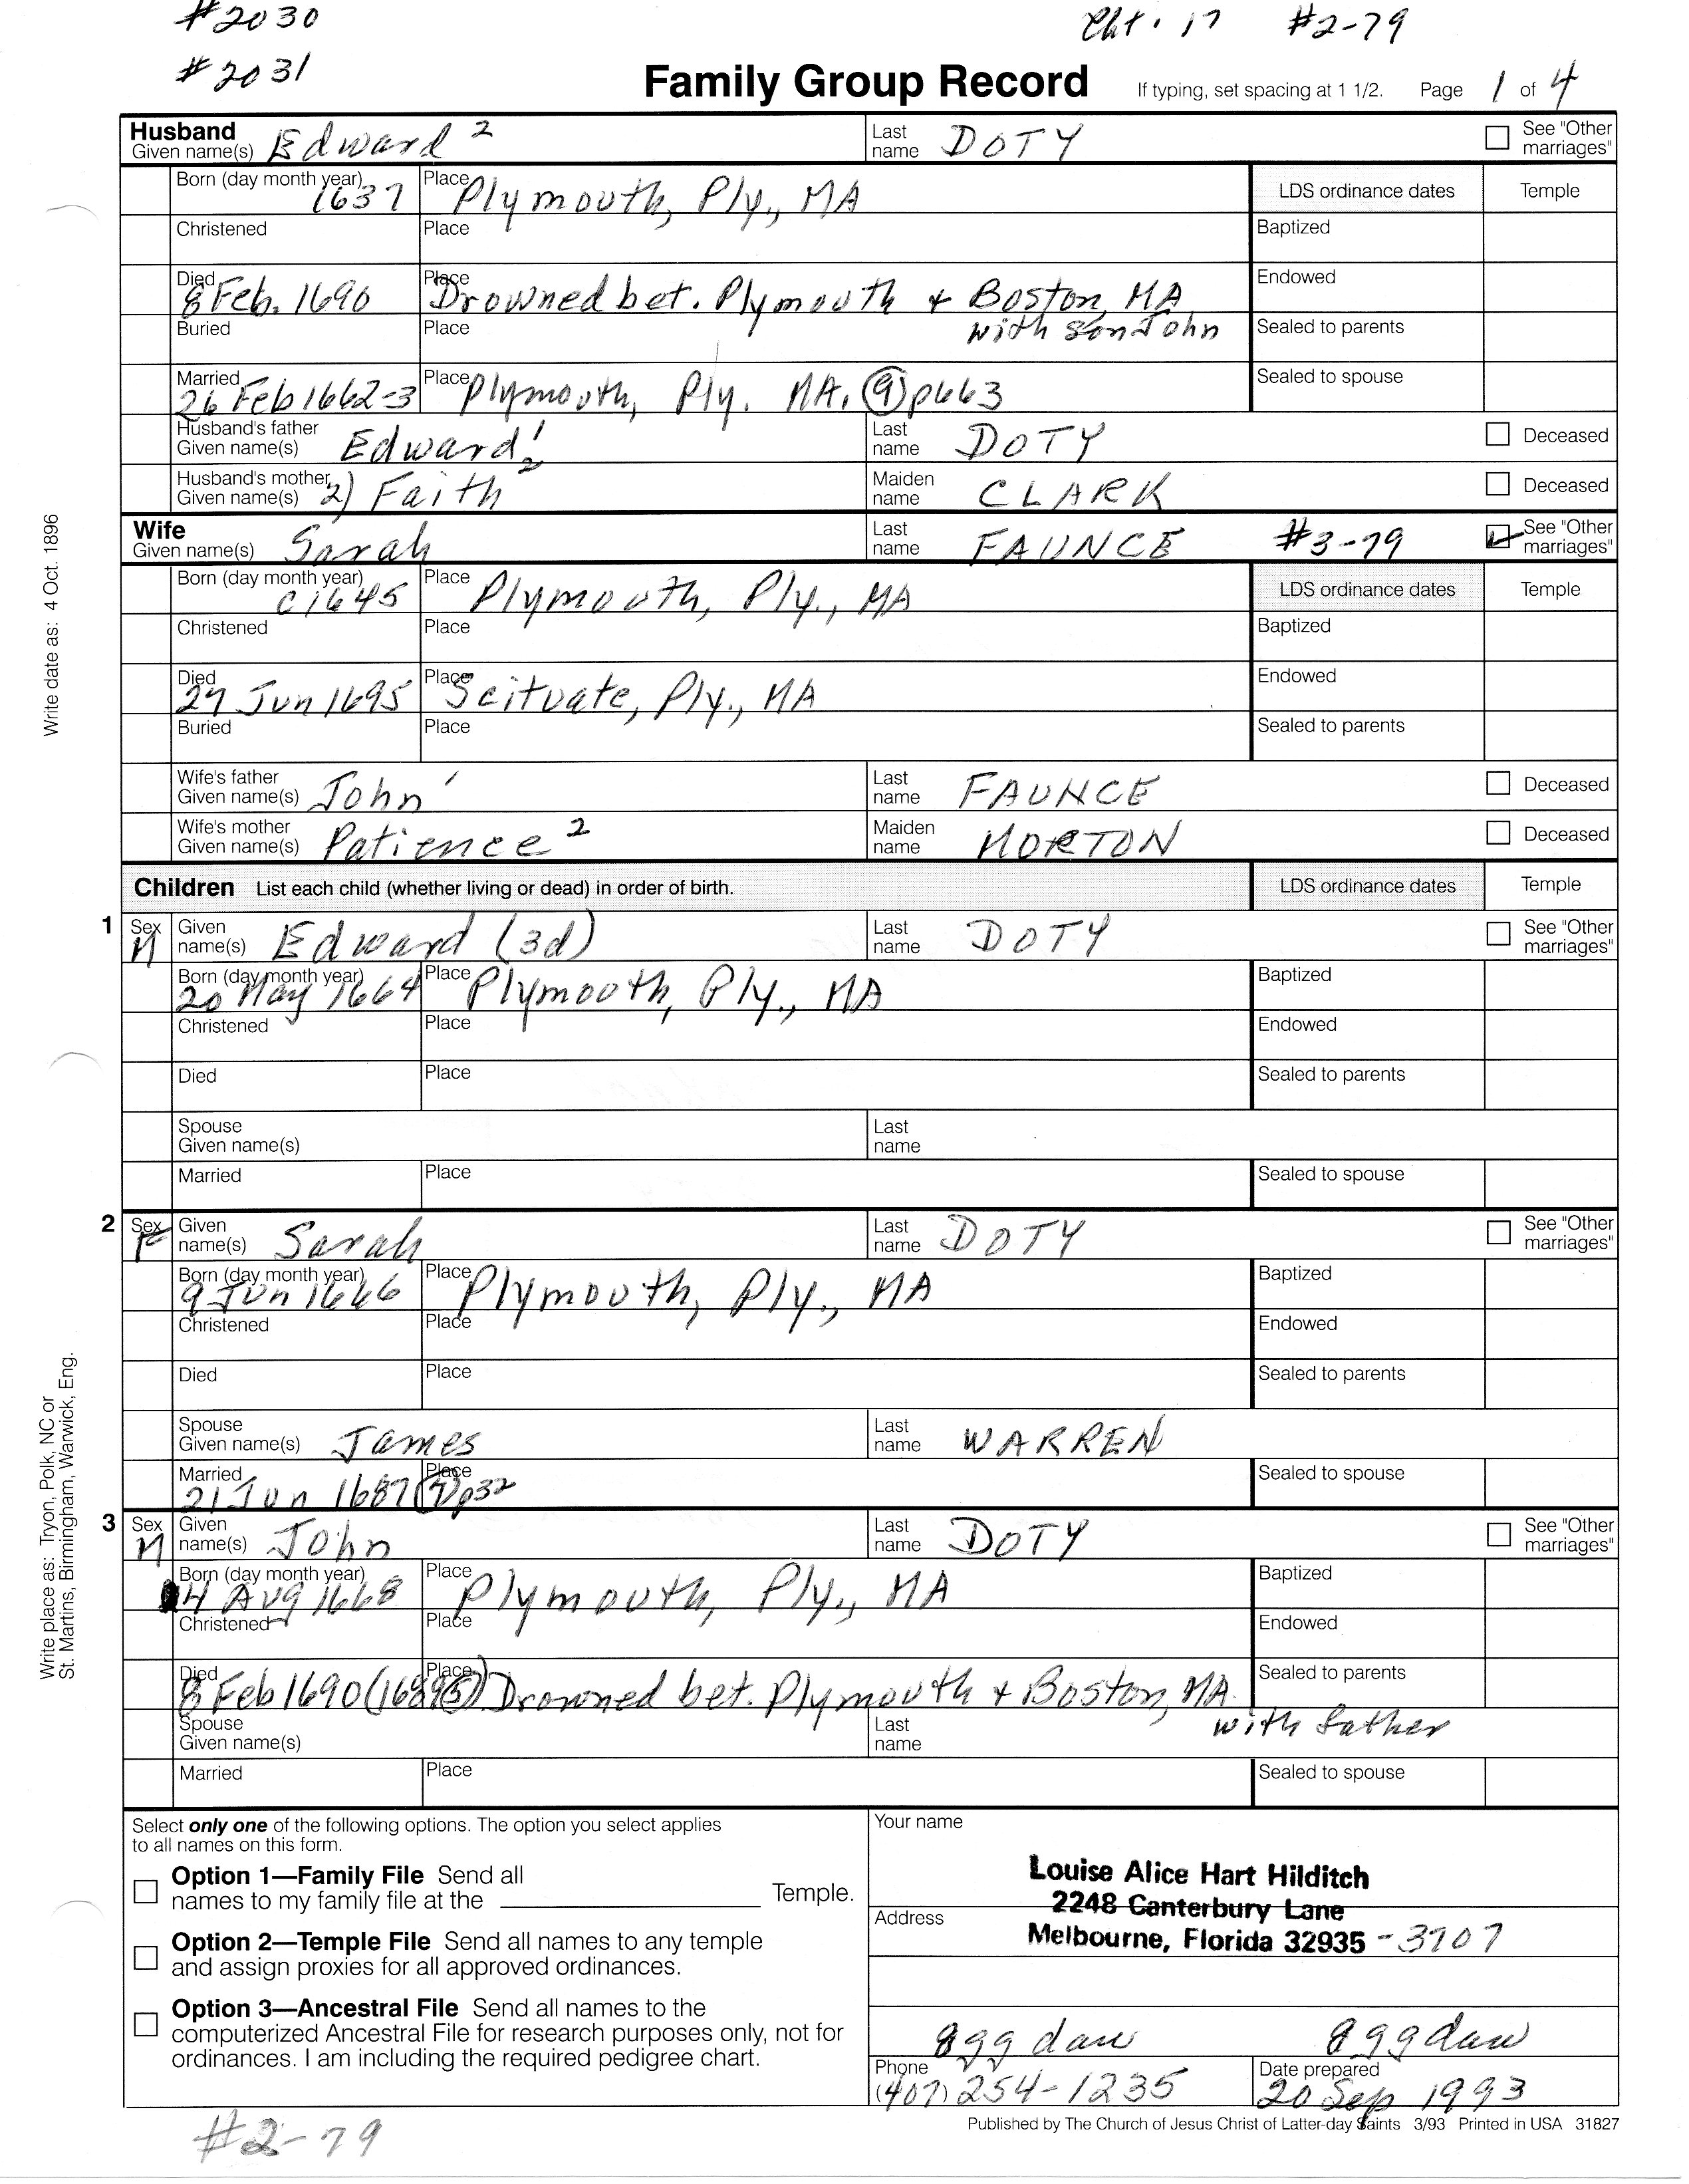 #2030
Cht. 17 #2-79
#2031
Family Group Record If typing, set spacing at 1 1/2. Page 1 of 4
Husband
Given name(s) Edward 2 Last name DOTY See "Other marriages"
Born (day month year) 1637 Place Plymouth, Ply., MA LDS ordinance dates Temple
Christened Place Baptized
Died 8 Feb. 1690 Place Drowned bet. Plymouth + Boston, MA with son John Endowed
Buried Place Sealed to parents
Married 26 Feb 1662-3 Place Plymouth, Ply. MA. (9) p663 Sealed to spouse
Husband's father Given name(s) Edward 1 Last name DOTY Deceased
Husband's mother Given name(s) 2) Faith 2 Maiden name CLARK Deceased
Wife
Given name(s) Sarah Last name FAUNCE #3-79 See "Other marriages"
Born (day month year) c1645 Place Plymouth, Ply., MA LDS ordinance dates Temple
Christened Place Baptized
Died 27 Jun 1695 Place Scituate, Ply., MA Endowed
Buried Place Sealed to parents
Wife's father Given name(s) John 1 Last name FAUNCE Deceased
Wife's mother Given name(s) Patience 2 Maiden name MORTON Deceased
Children List each child (whether living or dead) in order of birth. LDS ordinance dates Temple
1 Sex M Given name(s) Edward (3d) Last name DOTY See "Other marriages"
Born (day month year) 20 May 1664 Place Plymouth, Ply., MA Baptized
Christened Place Endowed
Died Place Sealed to parents
Spouse Given name(s) Last name
Married Place Sealed to spouse
2 Sex F Given name(s) Sarah Last name DOTY See "Other marriages"
Born (day month year) 9 Jun 1666 Place Plymouth, Ply., MA Baptized
Christened Place Endowed
Died Place Sealed to parents
Spouse Given name(s) James Last name WARREN
Married 21 Jun 1687 Place p32 Sealed to spouse
3 Sex M Given name(s) John Last name DOTY See "Other marriages"
Born (day month year) 4 Aug 1668 Place Plymouth, Ply., MA Baptized
Christened Place Endowed
Died 8 Feb 1690 Place Drowned bet. Plymouth + Boston, MA. with father Sealed to parents
Spouse Given name(s) Last name
Married Place Sealed to spouse
Select only one of the following options. The option you select applies
to all names on this form.
Option 1—Family File Send all
names to my family file at the Temple.
Option 2—Temple File Send all names to any temple
and assign proxies for all approved ordinances.
Option 3—Ancestral File Send all names to the
computerized Ancestral File for research purposes only, not for
ordinances. I am including the required pedigree chart.
Your name
Louise Alice Hart Hilditch
2248 Canterbury Lane
Address
Melbourne, Florida 32935 -3707
8gg dau 8gg dau
Phone (407) 254-1235 Date prepared 20 Sep 1993
Published by The Church of Jesus Christ of Latter-day Saints 3/93 Printed in USA 31827
#2-79
Write date as: 4 Oct. 1896
Write place as: Tryon, Polk, NC or
St. Martins, Birmingham, Warwick, Eng.